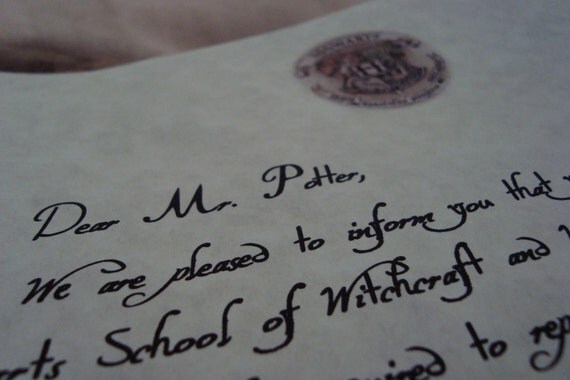 Dear Mr. Potter,
We are pleased to inform you that
School of Witchcraft and
to